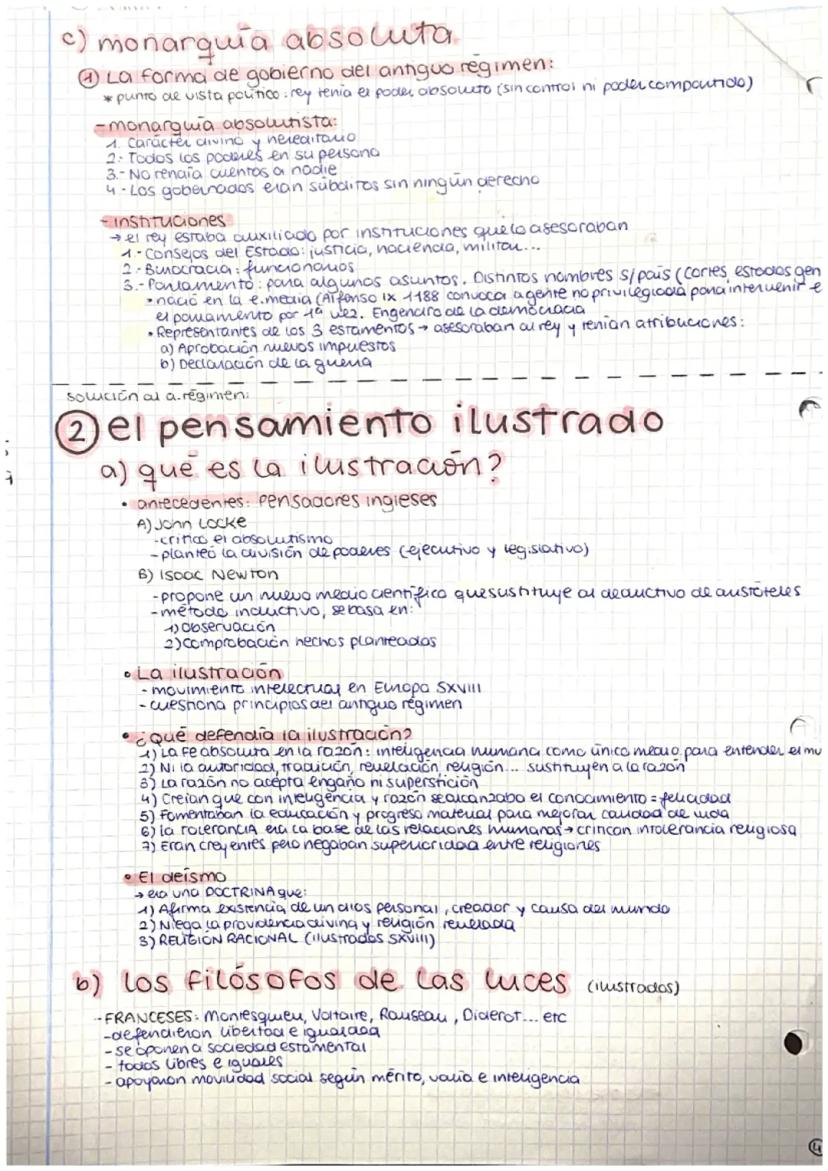 c) monarquía absoluta
① La forma de gobierno del antiguo régimen:
* punto de vista político: rey tenía el poder absoluto (sin control ni poder compartido)
- monarquía absolutista:
1. Carácter divino y hereditario
2.- Todos los poderes en su persona
3.- No rendía cuentas a nadie
4.- Los gobernados eran súbditos sin ningún derecho
- instituciones
→ el rey estaba auxiliado por instituciones que lo asesoraban
1.- Consejos del Estado: justicia, hacienda, militar...
2.- Burocracia: funcionarios
3.- Parlamento: para algunos asuntos. Distintos nombres s/país (cortes, estados gen
• nació en la e.media (Alfonso IX 1188 convoca a gente no privilegiada para intervenir e
el parlamento por 1ª vez. Engendro de la democracia
• Representantes de los 3 estamentos → asesoraban al rey y tenían atribuciones:
a) Aprobación nuevos impuestos
b) Declaración de la guerra
solución al a.régimen:
② el pensamiento ilustrado
a) qué es la ilustración?
• antecedentes: pensadores ingleses
A) John Locke
- criticó el absolutismo
- planteó la división de poderes (ejecutivo y legislativo)
B) Isaac Newton
- propone un nuevo medio científico que sustituye al deductivo de aristóteles
- método inductivo, se basa en:
1) observación
2) comprobación hechos planteados
• La ilustración
- movimiento intelectual en Europa SXVIII
- cuestiona principios del antiguo régimen
• ¿Qué defendía la ilustración?
1) La fe absoluta en la razón: inteligencia humana como único medio para entender el mu
2) Ni la autoridad, tradición, revelación, religión... sustituyen a la razón
3) La razón no acepta engaño ni superstición
4) Creían que con inteligencia y razón se alcanzaba el conocimiento = felicidad
5) Fomentaban la educación y progreso material para mejorar calidad de vida
6) la tolerancia era la base de las relaciones humanas → critican intolerancia religiosa
7) Eran creyentes pero negaban superioridad entre religiones
• El deísmo
→ era una DOCTRINA que:
1) Afirma existencia de un dios personal, creador y causa del mundo
2) Niega la providencia divina y religión revelada
3) RELIGIÓN RACIONAL (ilustrados SXVIII)
b) los filósofos de las luces (ilustrados)
- FRANCESES: Montesquieu, Voltaire, Rouseau, Diderot... etc
- defendieron libertad e igualdad
- se oponen a sociedad estamental
- todos libres e iguales
- apoyaron movilidad social según mérito, valía e inteligencia
4